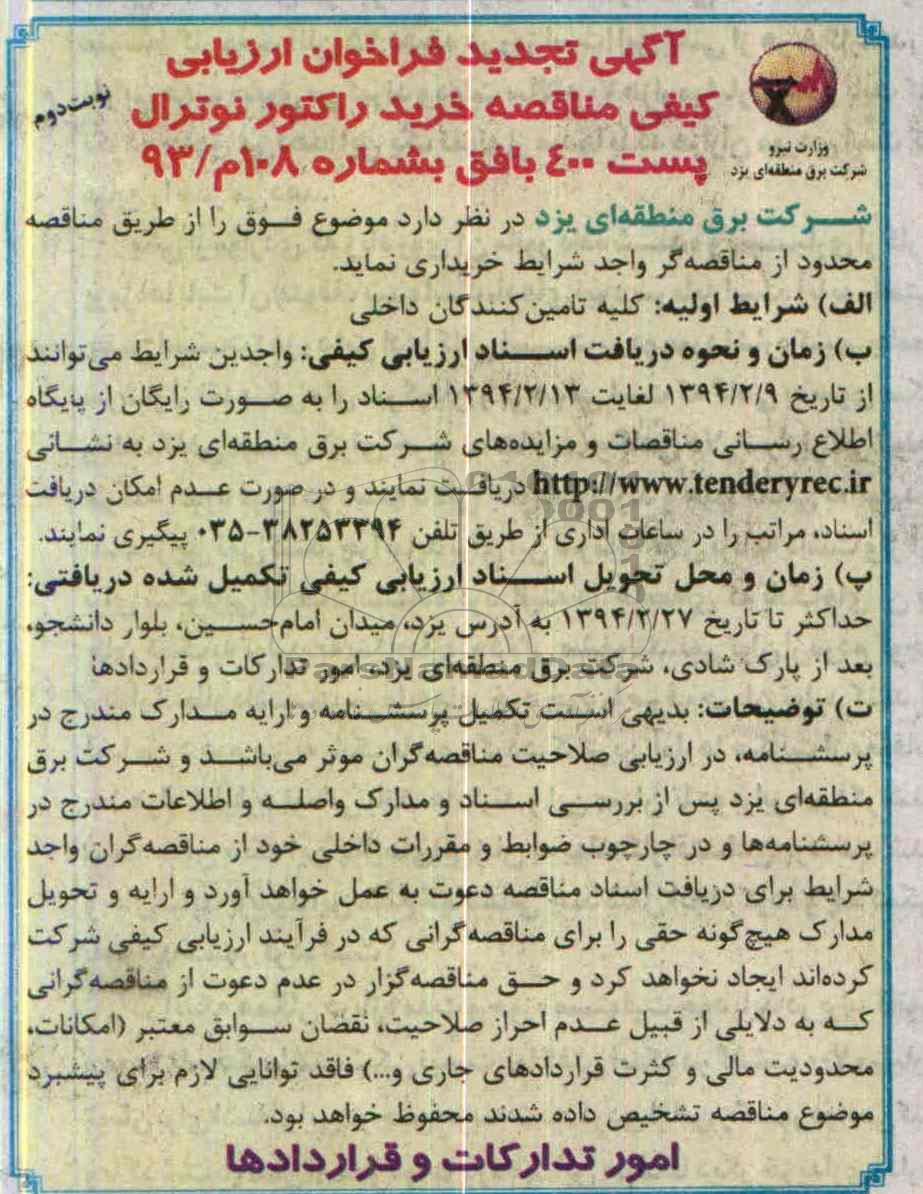 آگهی تجدید فراخوان ارزیابی
کیفی مناقصه خرید راکتور نوترال
پست ۴۰۰ بافق بشماره ۱۰۸م/۹۳
نوبت دوم
وزارت نیرو
شرکت برق منطقه‌ای یزد
شرکت برق منطقه‌ای یزد در نظر دارد موضوع فوق را از طریق مناقصه
محدود از مناقصه‌گر واجد شرایط خریداری نماید.
الف) شرایط اولیه: کلیه تامین‌کنندگان داخلی
ب) زمان و نحوه دریافت اسناد ارزیابی کیفی: واجدین شرایط می‌توانند
از تاریخ ۱۳۹۴/۲/۹ لغایت ۱۳۹۴/۲/۱۳ اسناد را به صورت رایگان از پایگاه
اطلاع رسانی مناقصات و مزایده‌های شرکت برق منطقه‌ای یزد به نشانی
http://www.tenderyrec.ir دریافت نمایند و در صورت عدم امکان دریافت
اسناد، مراتب را در ساعات اداری از طریق تلفن ۳۸۲۵۳۳۹۴-۰۳۵ پیگیری نمایند.
پ) زمان و محل تحویل اسناد ارزیابی کیفی تکمیل شده دریافتی:
حداکثر تا تاریخ ۱۳۹۴/۲/۲۷ به آدرس یزد، میدان امام‌حسین، بلوار دانشجو،
بعد از پارک شادی، شرکت برق منطقه‌ای یزد، امور تدارکات و قراردادها
ت) توضیحات: بدیهی است تکمیل پرسشنامه و ارایه مدارک مندرج در
پرسشنامه، در ارزیابی صلاحیت مناقصه‌گران موثر می‌باشد و شرکت برق
منطقه‌ای یزد پس از بررسی اسناد و مدارک واصله و اطلاعات مندرج در
پرسشنامه‌ها و در چارچوب ضوابط و مقررات داخلی خود از مناقصه‌گران واجد
شرایط برای دریافت اسناد مناقصه دعوت به عمل خواهد آورد و ارایه و تحویل
مدارک هیچ‌گونه حقی را برای مناقصه‌گرانی که در فرآیند ارزیابی کیفی شرکت
کرده‌اند ایجاد نخواهد کرد و حق مناقصه‌گزار در عدم دعوت از مناقصه‌گرانی
که به دلایلی از قبیل عدم احراز صلاحیت، نقصان سوابق معتبر (امکانات،
محدودیت مالی و کثرت قراردادهای جاری و...) فاقد توانایی لازم برای پیشبرد
موضوع مناقصه تشخیص داده شدند محفوظ خواهد بود.
امور تدارکات و قراردادها